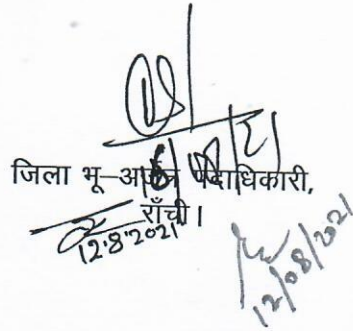 जिला भू–अर्जन पदाधिकारी,
राँची।
12.8.2021
12/08/2021